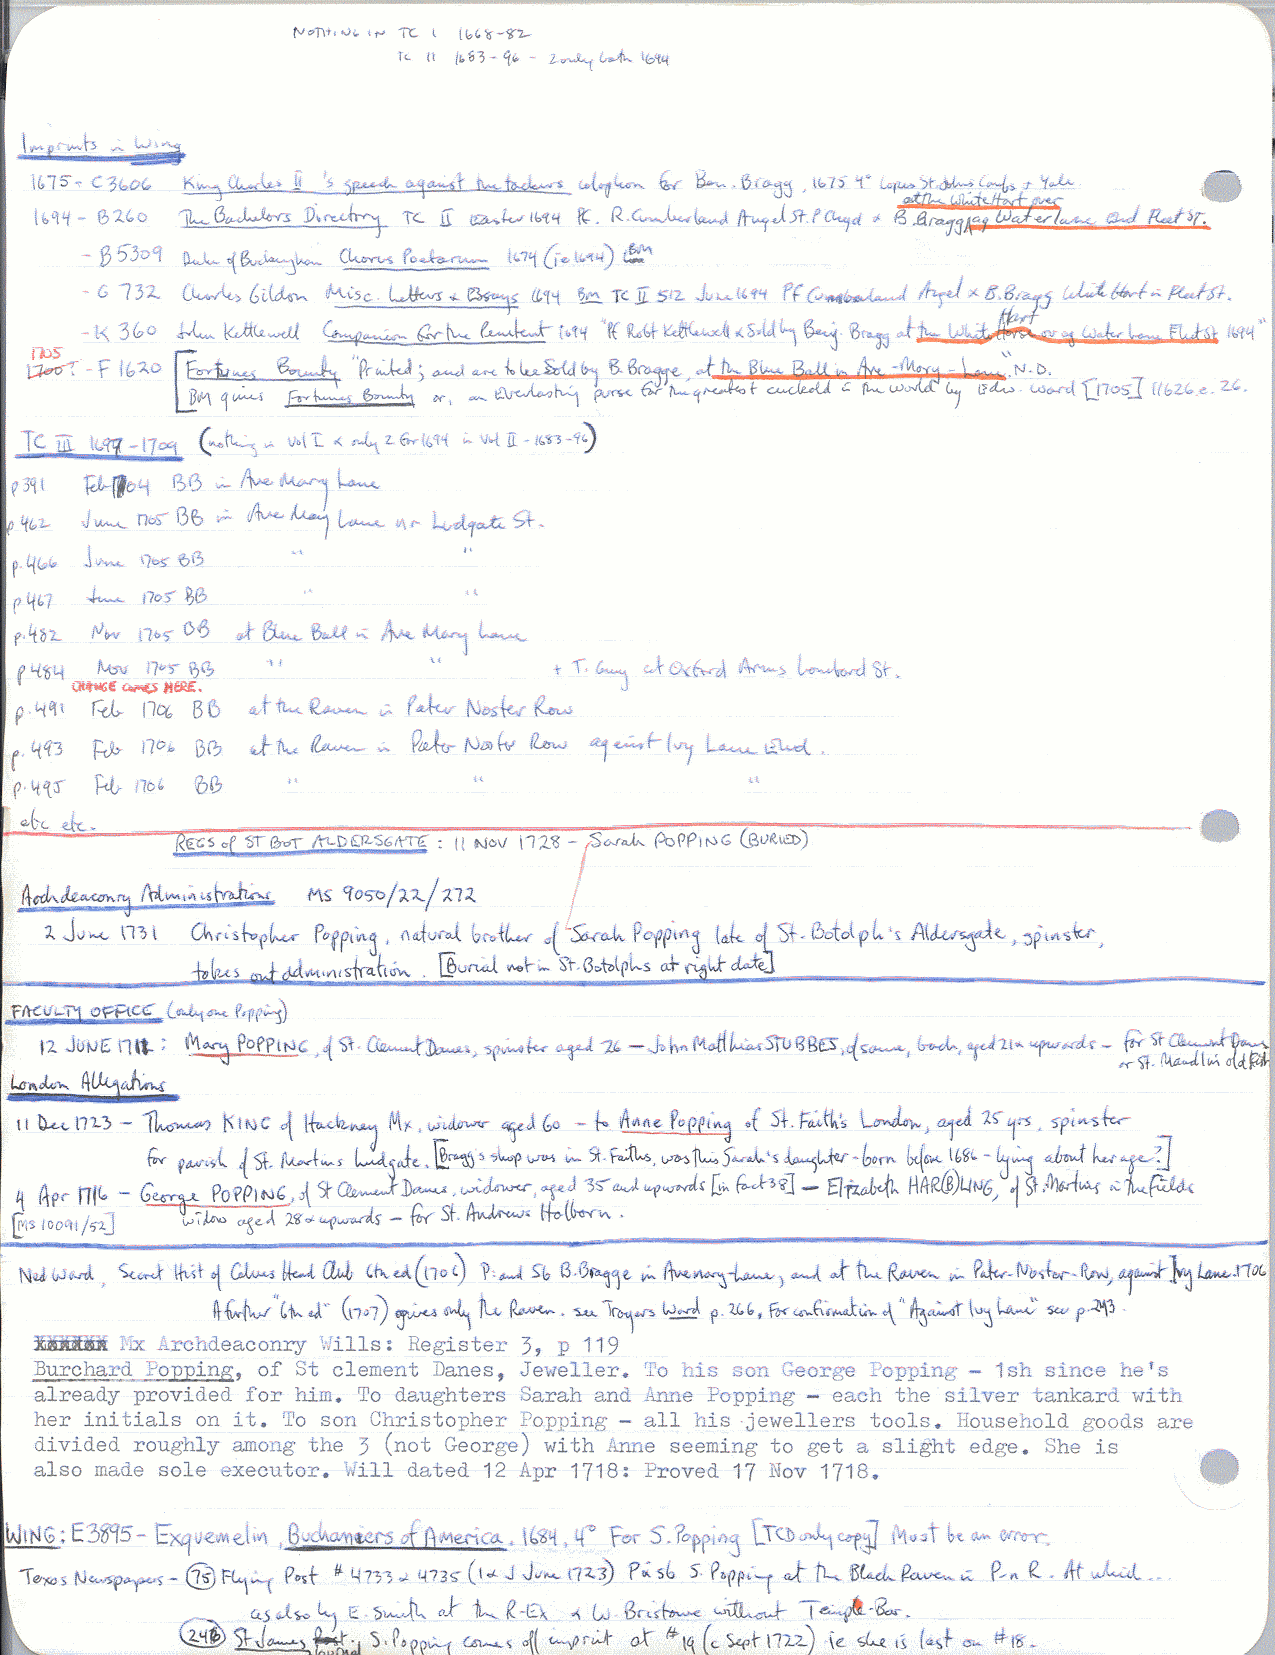 NOTHING IN TC I 1668-82
TC II 1683-96 - 2 only both 1694
Imprints in Wing
1675 - C3606 King Charles II's speech against the colophon for Ben. Bragg, 1675 4° copies St. Johns Camb. + Yale
at the White Hart over
1694 - B260 The Bachelors Directory TC II Easter 1694 Pf. R. Cumberland Angel St. P Chyd & B. Bragg ag Water lane end Fleet St.
- B5309 Duke of Buckingham Chorus Poetarum 1674 (ie 1694) BM
- G 732 Charles Gildon Misc. Letters & Essays 1694 BM TC II 512 June 1694 Pf Cumberland Angel & B. Bragg White Hart in Fleet St.
Hart
- K 360 John Kettlewell Companion for the Penitent 1694 "Pf Robt Kettlewell & Sold by Benj. Bragg at the White Horse over ag Water Lane Fleet St 1694"
1705
1700? - F1620 [Fortunes Bounty "Printed; and are to bee Sold by B. Bragge, at the Blue Ball in Ave-Mary-Lane". N.D.
BM gives Fortunes Bounty or, an Everlasting purse for the greatest cuckold in the world by Edw. Ward [1705] 11626.e.26.
TC III 1697-1709 (nothing in Vol I & only 2 for 1694 in Vol II - 1683-96)
p391 Feb 1704 BB in Ave Mary Lane
p462 June 1705 BB in Ave Mary Lane nr Ludgate St.
p.466 June 1705 BB " "
p467 June 1705 BB " "
p.482 Nov 1705 BB at Blue Ball in Ave Mary Lane
p484 Nov 1705 BB " " + T. Guy at Oxford Arms Lombard St.
CHANGE comes HERE.
p.491 Feb 1706 BB at the Raven in Pater Noster Row
p.493 Feb 1706 BB at the Raven in Pater Noster Row against Ivy Lane End.
p.495 Feb 1706 BB " " "
etc etc.
REGS of ST BOT ALDERSGATE : 11 NOV 1728 - Sarah POPPING (BURIED)
Archdeaconry Administrations MS 9050/22/272
2 June 1731 Christopher Popping, natural brother of Sarah Popping late of St. Botolph's Aldersgate, spinster,
takes out administration. [Burial not in St. Botolphs at right date]
FACULTY OFFICE (only one Popping)
12 JUNE 1711: Mary POPPING, of St. Clement Danes, spinster aged 26 - John Matthias STUBBES, of same, bach, aged 21 & upwards - for St Clement Danes
or St. Maudlin's old Fish
London Allegations
11 Dec 1723 - Thomas KING of Hackney Mx, widower aged 60 - to Anne Popping of St. Faith's London, aged 25 yrs, spinster
for parish of St. Martins Ludgate. [Bragg's shop was in St. Faiths, was this Sarah's daughter - born before 1686 - lying about her age?]
4 Apr 1716 - George POPPING, of St Clement Danes, widower, aged 35 and upwards [in fact 38] - Elizabeth HAR(B)LING, of St. Martins in the fields
[MS 10091/52] widow aged 28 & upwards - for St. Andrews Holborn.
Ned Ward, Secret Hist of Calves Head Club 6th ed (1706) P. and Sb B. Bragge in Avemary-Lane, and at the Raven in Pater-Noster-Row, against Ivy Lane. 1706
A further "6th ed" (1707) gives only the Raven. see Troyers Ward p. 266, for confirmation of "Against Ivy Lane" see p.243.
Mx Archdeaconry Wills: Register 3, p 119
Burchard Popping, of St clement Danes, Jeweller. To his son George Popping - 1sh since he's
already provided for him. To daughters Sarah and Anne Popping - each the silver tankard with
her initials on it. To son Christopher Popping - all his jewellers tools. Household goods are
divided roughly among the 3 (not George) with Anne seeming to get a slight edge. She is
also made sole executor. Will dated 12 Apr 1718: Proved 17 Nov 1718.
WING: E3895 - Exquemelin, Buchaniers of America, 1684, 4° For S. Popping [TCD only copy] Must be an error.
Texas Newspapers - (75) Flying Post # 4733 & 4735 (1 & J June 1723) P & Sb S. Popping at the Black Raven in P-n R. At which...
as also by E. Smith at the R-Ex & W. Bristowe without Temple-Bar.
(24B) St James Post. Journal S. Popping comes off imprint at #19 (c Sept 1722) ie she is last on #18.